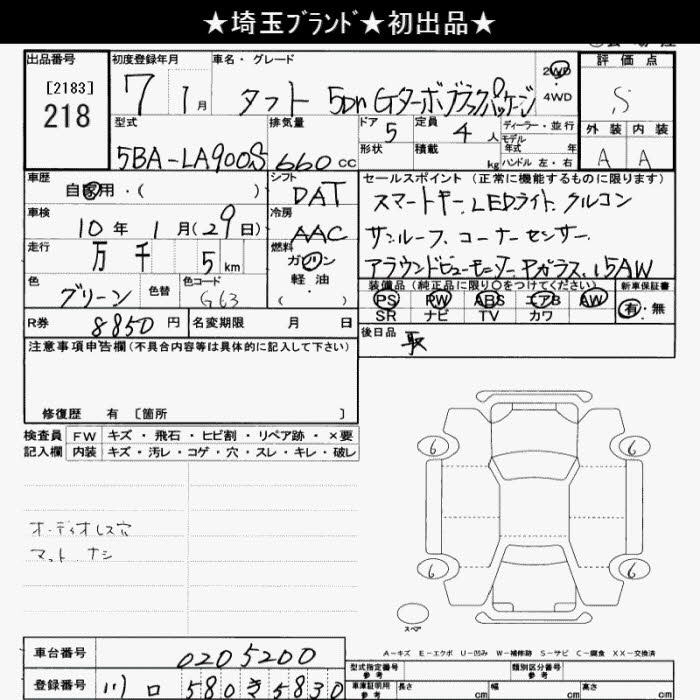 ★埼玉ﾌﾞﾗﾝﾄﾞ★初出品★
出品番号
[2183]
218
初度登録年月
7 1月
車名・グレード
タフト 5Dr Gターボブラックパッケージ
2WD
・
4WD
評価点
S
外装 内装
A A
型式
5BA-LA900S
排気量
660 cc
ドア 5
形状
定員 4 人
積載 kg
ディーラー・並行
モデル
年式 年
ハンドル 左・右
車歴
自家用・( )
車検
10年 1月(29日)
走行
万 千 5 km
色
グリーン
色替
色コード
G63
シフト
DAT
冷房
AAC
燃料
ガソリン
・
軽油
( )
セールスポイント (正常に機能するものに限ります)
スマートキー. LEDライト. クルコン
サンルーフ. コーナーセンサー.
アラウンドビューモニター. Pガラス. 15AW
装備品(純正品に限り○をつけてください)
PS PW ABS エアB AW
SR ナビ TV カワ
新車保証書
有・無
R券 8850 円
名変期限 月 日
後日品
取
注意事項申告欄(不具合内容等は具体的に記入して下さい)
修復歴 有 [箇所 ]
検査員
記入欄
FW キズ・飛石・ヒビ割・リペア跡・×要
内装 キズ・汚レ・コゲ・穴・スレ・キレ・破レ
オーディオレス穴
マット ナシ
6 6
6 6
スペア
A−キズ E−エクボ U−凹み W−補修跡 S−サビ C−腐食 XX−交換済
車台番号
0205200
登録番号
川口 580 き 5830
型式指定番号
参考
類別区分番号
参考
車庫証明用
参考
長さ cm
幅 cm
高さ cm